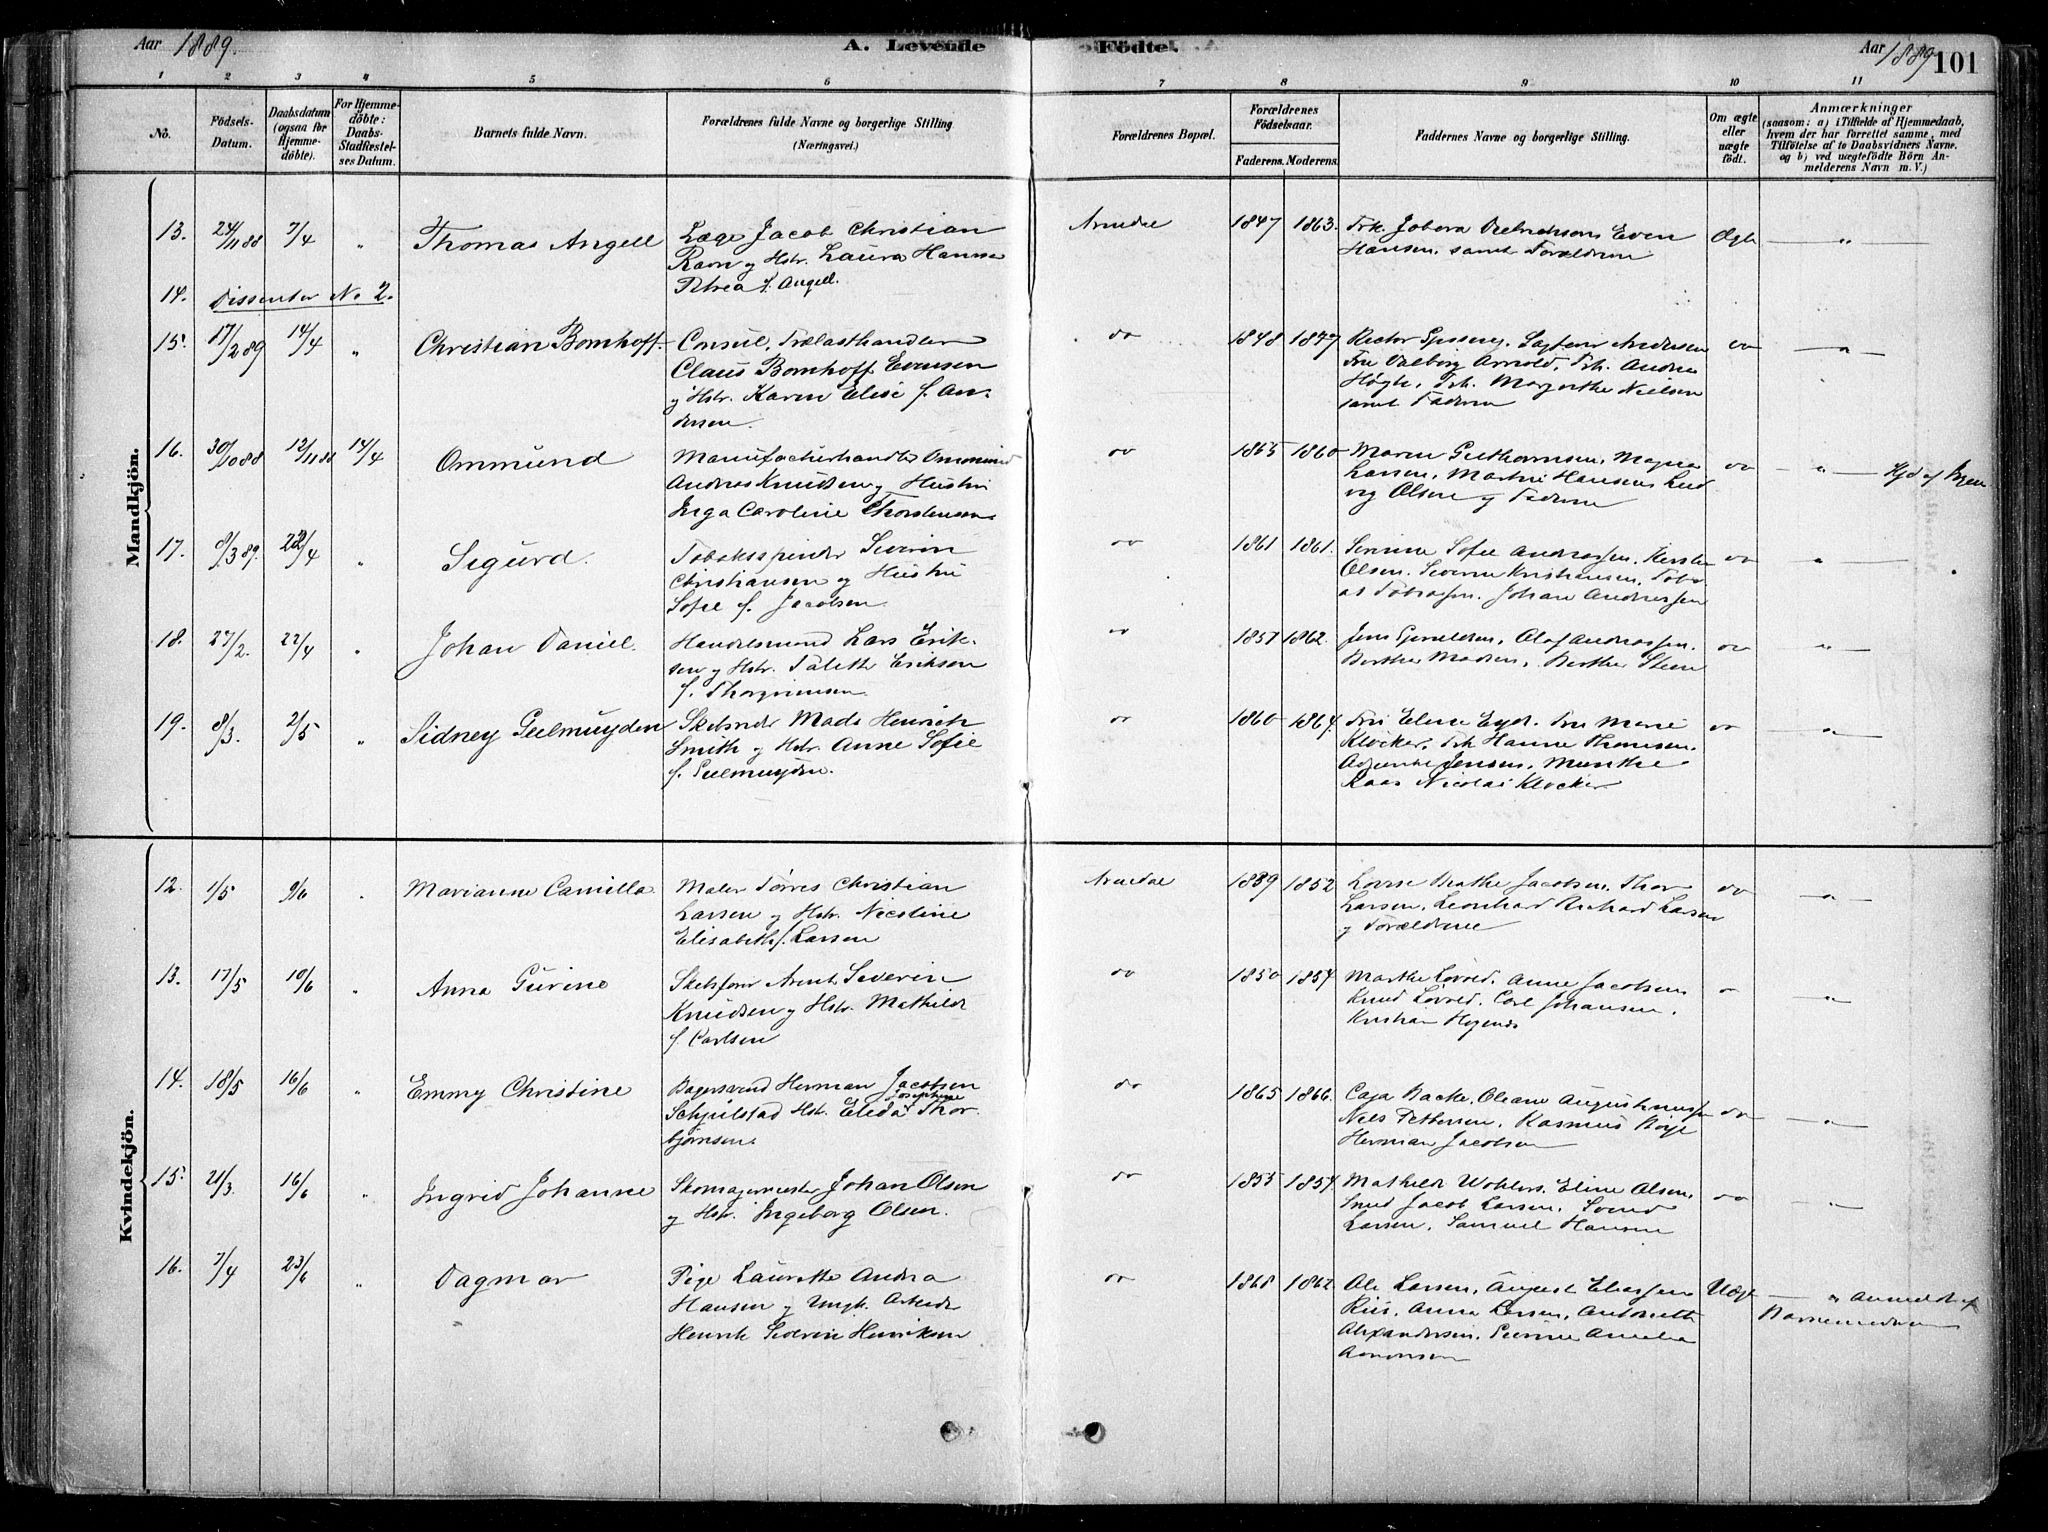 Aar 1889.
A. Levende Födte.
Aar 1889 101
1 2 3 4 5 6 7 8 9 10 11
No.
Födsels-
Datum.
Daabsdatum
(ogsaa for
Hjemme-
döbte).
For Hjemme-
döbte:
Daabs-
Stadfæstel-
ses Datum.
Barnets fulde Navn.
Forældrenes fulde Navne og borgerlige Stilling
(Næringsvei.)
Forældrenes Bopæl.
Forældrenes
Födselsaar.
Faderens. Moderens.
Faddernes Navne og borgerlige Stilling.
Om ægte
eller
uægte
födt.
Anmærkninger
(saasom: a) i Tilfælde af Hjemmedaab,
hvem der har forrettet samme, med
Tilföielse af to Daabsvidners Navne.
og b) ved uægtefödte Börn An-
melderens Navn m. V.)
Mandkjön.
13. 24/11 88 7/4 " Thomas Angell
Læge Jacob Christian
Ravn og Hstr. Laura Hanna
Petrea f. Angell.
Arendal 1847 1863.
Hansen, samt Forældrene
Ægte "
14. Dissenter No 2.
15. 17/2 89 14/4 " Christian Bomhoff.
Consul, Trælasthandler
Claus Bomhoff Evensen
og Hstr. Karen Elise f. An-
dersen.
do 1848 1847
Fru Valborg Arnold, Frk. Andrea
Høgh, Frk. Margrethe Nielsen
samt Faderen
do "
16. 30/10 88 12/11 88 14/4 Ommund
Manufacturhandler Ommund
Andreas Knudsen og Hustru
Inga Caroline Thorstensen.
do 1865 1860
Larsen, Martine Hansens Lud
vig Olsen og Faderen
do " Hjd af
17. 8/3 89. 22/4 " Sigurd.
Tobaksspinder Severin
Christiansen og Hustru
Sofie f. Jacobsen.
do 1861 1861.
Serine Sofie Andreassen, Kirsten
Olsen. Severin Kristiansen, Tobi-
as Tobiassen. Johan Andreassen
do "
18. 27/2. 22/4 " Johan Daniel.
Handelsmand Lars Erik-
sen og Hstr. Talette Eriksen
f. Thorgrimsen
do 1857 1862.
Olaf Andreassen.
Berthe Madsen, Berthe Steen
do "
19. 8/3. 2/5 " Sidney Geelmuyden
Mads Henrich
Smith og Hstr. Anne Sofie
f. Geelmuyden.
do 1860 1864.
Fru Elene Eyde. Fru Marie
Kløcker, Frk Hanne Thomsen.
Adjunkt Jensen, Munthe-
Kaas Nicolai Kløcker
do "
Kvindekjön.
12. 1/5 9/6 " Marianne Camilla
Maler Tørres Christian
Larsen og Hstr. Nicoline
Elisabeth f. Larsen
Arendal 1839 1852
Lovise Beathe Jacobsen, Thor
Larsen, Leonhard Richard Larsen
og Forældrene
do "
13. 17/5 10/6 " Anna Gurine
Arent Severin
Knudsen og Hstr. Mathilde
f. Carlsen
do 1850 1857.
Marthe Løvold. Anne Jacobsen
Knud Løvold. Carl Johansen,
Kristian
do "
14. 18/5 16/6 " Emmy Christine
Bagersvend Herman Jacobsen
Schjulstad Hst. Elida Josephine Thor-
bjørnsen.
do 1865 1866.
Caja Backe, Oleane
Niels Pettersen, Rasmus
Herman Jacobsen
do "
15. 21/3. 16/6 " Ingrid Johanne
Skomagermester Johan Olsen
og Hstr. Ingeborg Olsen.
do 1855 1857.
Mathilde Wohlers, Eline Olsen,
Smed Jacob Larsen, Svend
Larsen, Samuel Hansen
do "
16. 7/4 23/6 " Dagmar
Pige Laurette Andrea
Hansen og Ungk. Arbeider
Henrik Severin Henriksen
do 1868 1862
Ole Larsen, August Eliassen
Riis, Anna Larsen, Antonette
Alexandersen, Severine Amalia
Aanonsen
Uægte " Anmeldt af
Barnemoderen